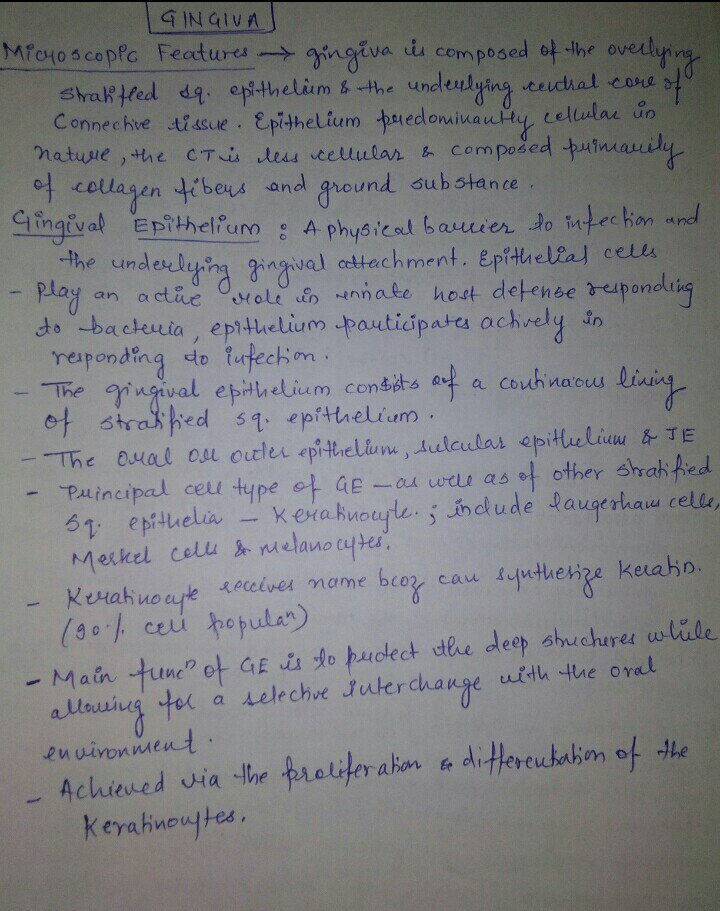 GINGIVA
Microscopic Features → gingiva is composed of the overlying
stratified sq. epithelium & the underlying central core of
Connective tissue. Epithelium predominantly cellular in
nature, the CT is less cellular & composed primarily
of collagen fibers and ground substance.
Gingival Epithelium : A physical barrier to infection and
the underlying gingival attachment. Epithelial cells
- Play an active role in innate host defense responding
to bacteria, epithelium participates actively in
responding to infection.
- The gingival epithelium consists of a continuous lining
of stratified sq. epithelium.
- The oral or outer epithelium, sulcular epithelium & JE
- Principal cell type of GE — as well as of other stratified
sq. epithelia - Keratinocyte. ; include langerhans cells,
Merkel cells & melanocytes.
- Keratinocyte receives name bcoz can synthesize keratin.
(90% cell populan)
- Main funcn of GE is to protect the deep structures while
allowing for a selective interchange with the oral
environment.
- Achieved via the proliferation & differentiation of the
Keratinocytes.